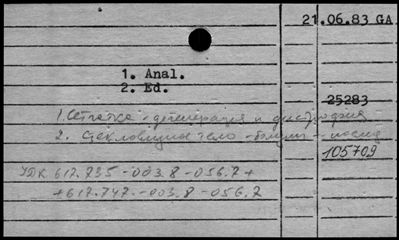 21.06.83 GA
1. Anal.
2. Ed.
25283
1. Сетчатка - дегенерация и дистрофия
2. Стекловидное тело -
105709
УДК 617.735-003.8-056.7 +
+617.747-003.8-056.7